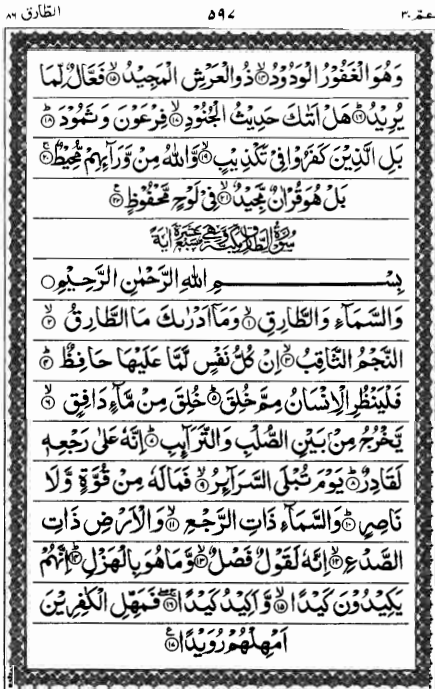 عمّ ٣٠ ٥٩٧ الطّارق ٨٦
وَهُوَ الْغَفُوْرُ الْوَدُوْدُ ۙ﴿۱۴﴾ ذُو الْعَرْشِ الْمَجِيْدُ ۙ﴿۱۵﴾ فَعَّالٌ لِّمَا
يُرِيْدُ ؕ﴿۱۶﴾ هَلْ اَتٰىكَ حَدِيْثُ الْجُنُوْدِ ۙ﴿۱۷﴾ فِرْعَوْنَ وَ ثَمُوْدَ ؕ﴿۱۸﴾
بَلِ الَّذِيْنَ كَفَرُوْا فِيْ تَكْذِيْبٍ ۙ﴿۱۹﴾ وَّ اللّٰهُ مِنْ وَّرَآئِهِمْ مُّحِيْطٌ ۚ﴿۲۰﴾
بَلْ هُوَ قُرْاٰنٌ مَّجِيْدٌ ۙ﴿۲۱﴾ فِيْ لَوْحٍ مَّحْفُوْظٍ ﴿۲۲﴾
سُوْرَةُ الطَّارِقِ مَكِّيَّةٌ وَّهِيَ سَبْعَ عَشْرَةَ اٰيَةً
بِسْمِ اللّٰهِ الرَّحْمٰنِ الرَّحِيْمِ
وَ السَّمَآءِ وَ الطَّارِقِ ۙ﴿۱﴾ وَ مَاۤ اَدْرٰىكَ مَا الطَّارِقُ ۙ﴿۲﴾
النَّجْمُ الثَّاقِبُ ۙ﴿۳﴾ اِنْ كُلُّ نَفْسٍ لَّمَّا عَلَيْهَا حَافِظٌ ؕ﴿۴﴾
فَلْيَنْظُرِ الْاِنْسَانُ مِمَّ خُلِقَ ؕ﴿۵﴾ خُلِقَ مِنْ مَّآءٍ دَافِقٍ ۙ﴿۶﴾
يَّخْرُجُ مِنْۢ بَيْنِ الصُّلْبِ وَ التَّرَآئِبِ ؕ﴿۷﴾ اِنَّهٗ عَلٰى رَجْعِهٖ
لَقَادِرٌ ؕ﴿۸﴾ يَوْمَ تُبْلَى السَّرَآئِرُ ۙ﴿۹﴾ فَمَا لَهٗ مِنْ قُوَّةٍ وَّ لَا
نَاصِرٍ ؕ﴿۱۰﴾ وَ السَّمَآءِ ذَاتِ الرَّجْعِ ۙ﴿۱۱﴾ وَ الْاَرْضِ ذَاتِ
الصَّدْعِ ۙ﴿۱۲﴾ اِنَّهٗ لَقَوْلٌ فَصْلٌ ۙ﴿۱۳﴾ وَّ مَا هُوَ بِالْهَزْلِ ؕ﴿۱۴﴾ اِنَّهُمْ
يَكِيْدُوْنَ كَيْدًا ۙ﴿۱۵﴾ وَّ اَكِيْدُ كَيْدًا ۚ﴿۱۶﴾ فَمَهِّلِ الْكٰفِرِيْنَ
اَمْهِلْهُمْ رُوَيْدًا ﴿۱۷﴾